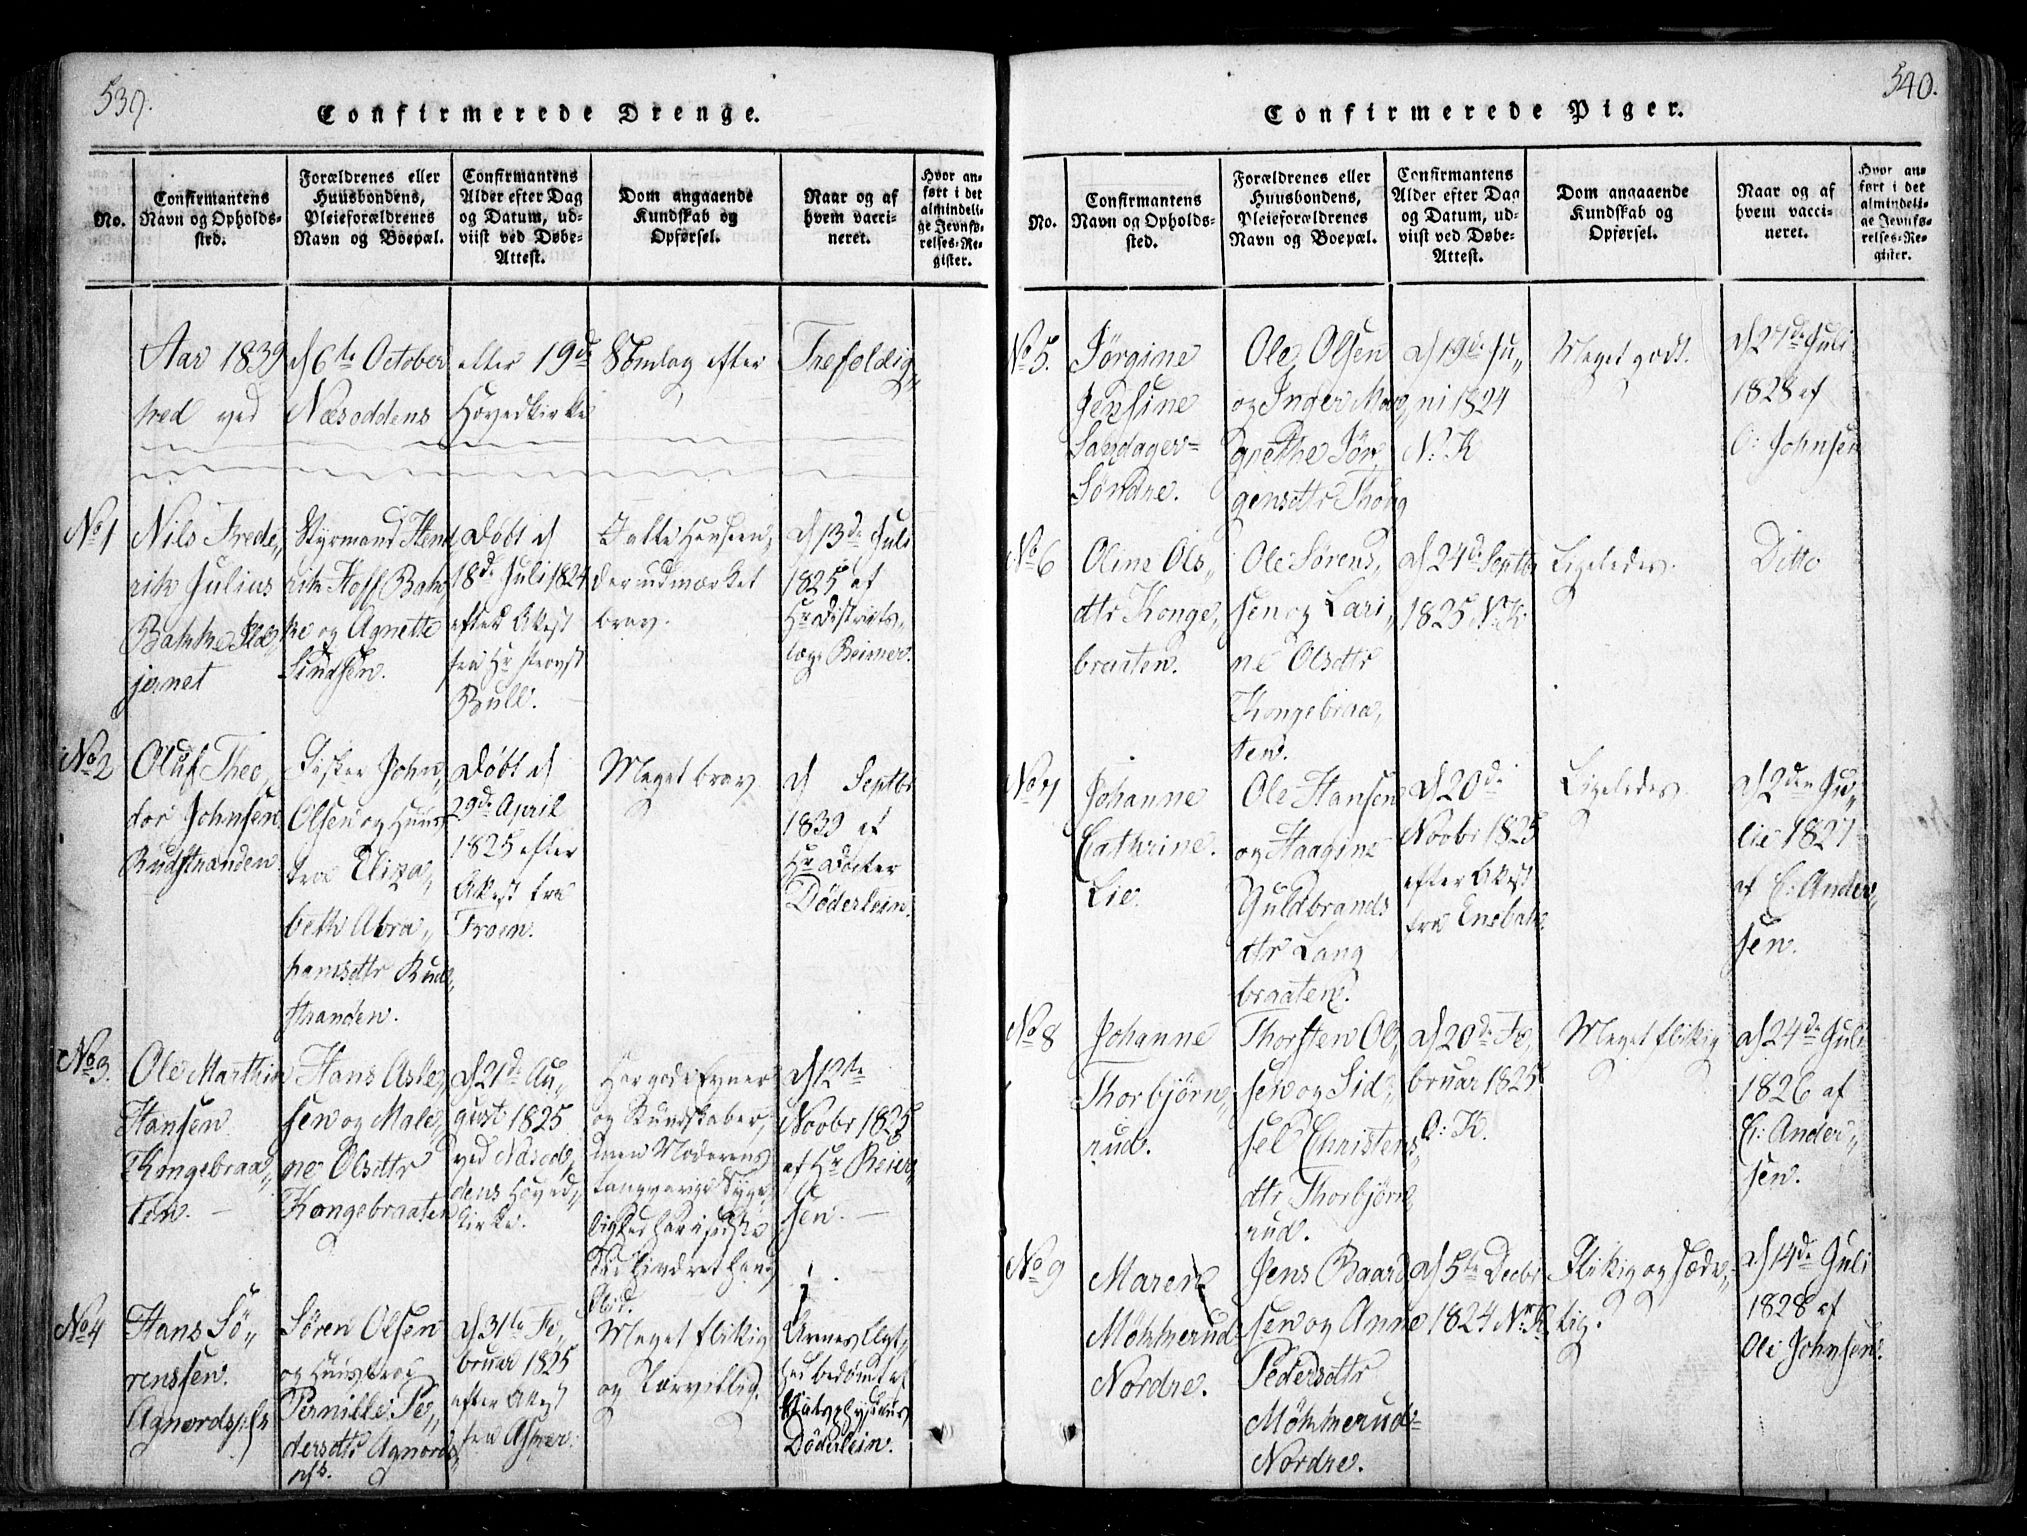 539.
Confirmerede Drenge.
No.
Confirmantens
Navn og Opholds-
sted.
Forældrenes eller
Huusbondens,
Pleieforældrenes
Navn og Boepæl.
Confirmantens
Alder efter Dag
og Datum, ud-
viist ved Døbe-
Attest.
Dom angaaende
Kundskab og
Opførsel.
Naar og af
hvem vacci-
neret.
Hvor an-
ført i det
almindeli-
ge Jevnfø-
relses-Re-
gister.
Aar 1839 d 6te October efter 19de Søndag efter Trefoldig„
hed ved Næsoddens Hovedkirke
No 1
Nils Frede„
rik Julius
Bahnke
jernet
Styrmand Hend
rik Hoff Bahn
ke og Agnette
Knudsen.
Døbt d
18de Juli 1824
efter Attest
fra Hr Provst
Bull.
udmærket
brav.
d 13de Juli
1825 af
Hr Districts„
læge Beimer.
No 2
Oluf Theo„
dor Johnsen
Rudstranden
Fisker John
Olsen og Huus
troe Eliza„
beth Abra„
hamsdtr Rud„
stranden.
Døbt d
29de April
1825 efter
Attest fra
Froen.
Meget brav
d Septbr
1839 af
Hr Docter
Döderlein.
No 3.
Ole Marthin
Hansen
Kongebraa„
ten.
Hans Asle„
sen og Male„
ne Olsdtr
Kongebraaten
d 21de Au„
gust 1825
ved Næsod„
dens Hoved„
kirke.
Har gode Evner
og Kundskaber,
men Moderens
langvarige Syge„
lighed har i sidste
Tid hindret hans
Flid.
d 12te
Novbr 1825
af Hr Reier„
sen.
No 4
Hans Sö„
renssen.
Agnordspls
Søren Olsen
og Huustroe
Pernille Pe„
dersdtr Agnords
pls.
d 31te Fe„
bruar 1825
efter Attest
fra Asker.
Meget flittig
og Lærvillig.
bedømt af
Döderlein.
540.
Confirmerede Piger.
No.
Confirmantens
Navn og Opholds-
sted.
Forældrenes eller
Huusbondens,
Pleieforældrenes
Navn og Boepæl.
Confirmantens
Alder efter Dag
og Datum, ud-
viist ved Døbe-
Attest.
Dom angaaende
Kundskab og
Opførsel.
Naar og af
hvem vacci-
neret.
Hvor an-
ført i det
almindeli-
ge Jevnfø-
relses-Re-
gister.
No 5.
Jørgine
Jensine
Sandager=
Søndre.
Ole Olsen
og Inger Mar„
grethe Jør„
gensdtr Thoug
d 19de Ju„
ni 1824
N: K
Meget godt.
d 27de Juli
1828 af
O: Johnsen
No 6
Oline Ols„
dtr Konge„
braaten.
Ole Sørens„
sen og Lari„
ne Olsdtr
Kongebraa„
ten.
d 24de Septbr
1825 N: K
Ligeledes.
Ditto
No 7
Johanne
Cathrine.
Lie.
Ole Hansen
og Haagine
Guldbrands
dtr Lang
braaten.
d 20de
Novbr 1825
efter Attest
fra Enebak
Ligeledes.
d 2den Ju„
lie 1827
af E: Ander„
sen.
No 8
Johanne
Thorbjørn„
rud.
Thorsten Ol„
sen og Sid„
sel Christens„
dtr Thorbjørn
rud.
d 20de Fe„
bruar 1825
O: K.
Meget flittig
d 24de Juli
1826 af
E: Ander„
sen.
No 9
Maren
Möhnerud
Nordre.
Jens Baard
sen og Anne
Pedersdtr
Möhnerud=
Nordre.
d 5te Decbr
1824 N: K
Flittig og sæde„
lig.
d 14de Juli
1828 af
Ole Johnsen.